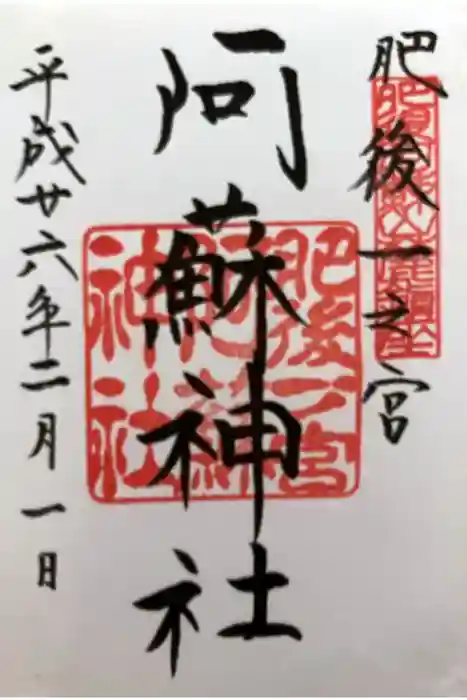 肥後一之宮
阿蘇神社
平成廿六年二月一日
肥後一宮
阿蘇
神社